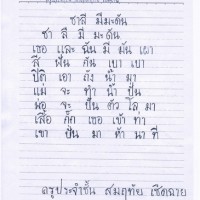 ชาลี มีมะดัน
ชา ลี มี มะ ดัน
เธอ และ ฉัน มี มัน เผา
สี ฟัน กัน เบา เบา
ปิติ เอา ถัง น้ำ มา
แม่ จะ ทำ น้ำ ปั่น
พ่อ จะ ปั้น ตัว โต มา
เสื้อ กั๊ก เธอ เข้า ท่า
เขา ปั่น มา ทำ นา ที่
ครูประจำชั้น สมฤทัย เชิดฉาย